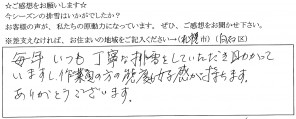 ☆ご感想をお願いします☆
今シーズンの排雪はいかがでしたか?
お客様の声が、私たちの原動力になっています。ぜひ、ご感想をお聞かせください。
※差支えなければ、お住まいの地域をご記入ください→(札幌市)(白石区)
毎年いつも丁寧な排雪をしていただき助かって
います。作業員の方の態度も好感が持てます。
ありがとうございます。